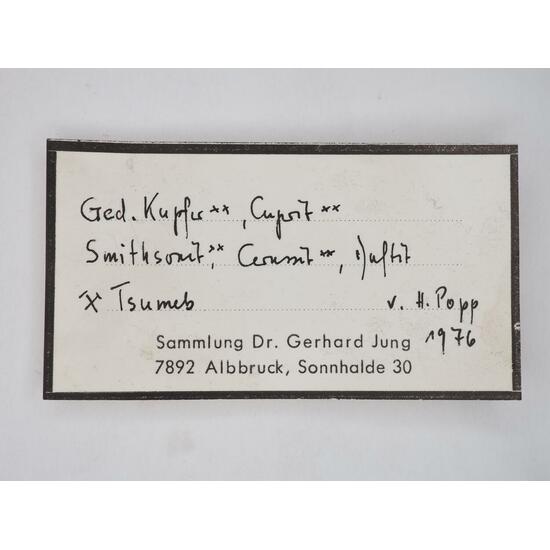 Ged. Kupfer xx, Cuprit xx
Smithsonit, xx Cerussit xx, Duftit
⚒ Tsumeb v. H. Popp
1976
Sammlung Dr. Gerhard Jung
7892 Albbruck, Sonnhalde 30